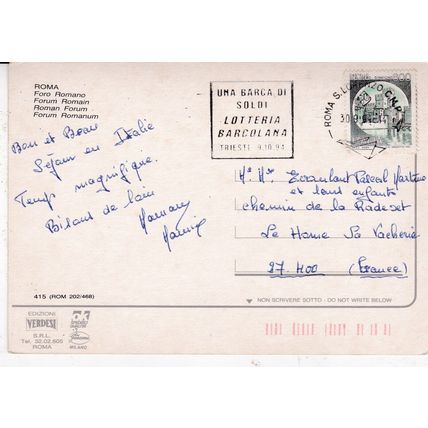 ROMA
Foro Romano
Forum Romain
Roman Forum
Forum Romanum
Bon et Beau
Séjour en Italie
Temps magnifique.
Bisous de loin
UNA BARCA DI
SOLDI
LOTTERIA
BARCOLANA
TRIESTE 9.10.94
ROMA S. LORENZO
Mr Mme Pascal Martine
et leurs enfants
chemin de la
Le Home Sa Vacherie
27.400 (France)
415 (ROM 202/468)
NON SCRIVERE SOTTO - DO NOT WRITE BELOW
EDIZIONI
VERDESI
S.R.L.
Tel. 52.02.605
ROMA
MILANO